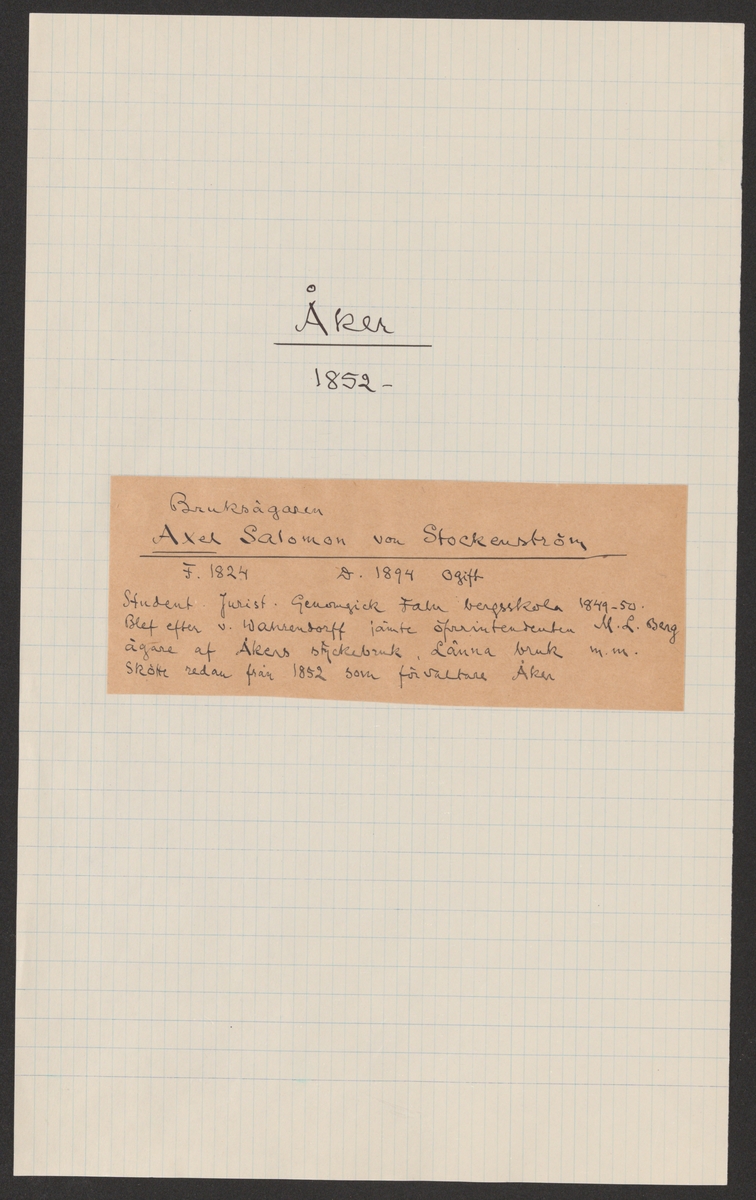 Åker
1852-
Bruksägaren
Axel Salomon von Stockenström
F. 1824 D. 1894 Ogift
Student. Jurist. Genomgick Falu bergsskola 1849-50.
Blef efter v. Wahrendorff jämte öfverintendenten M. L. Berg
ägare af Åkers styckebruk, Länna bruk m.m.
Skötte redan från 1852 som förvaltare Åker